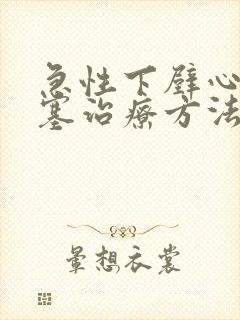 急性下壁心
塞治疗方法
晕想衣裳